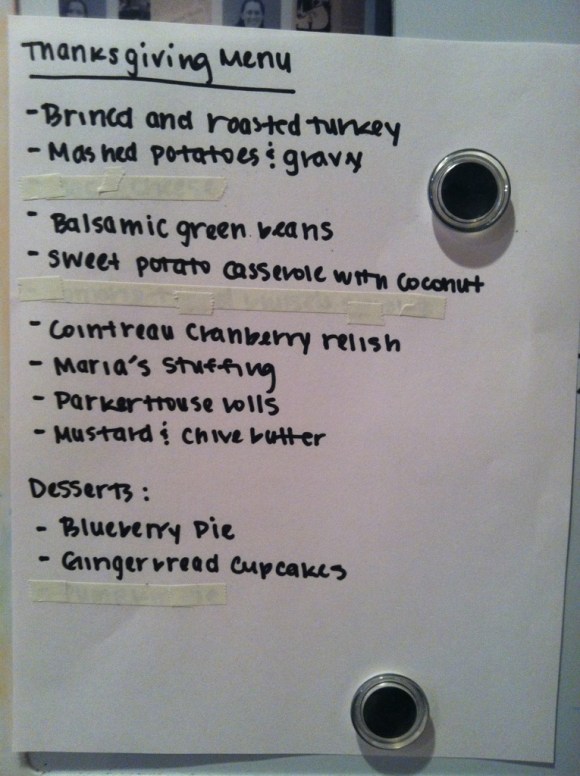 Thanksgiving Menu
- Brined and roasted turkey
- Mashed potatoes & gravy
- Balsamic green beans
- Sweet potato casserole with coconut
- Cointreau cranberry relish
- Maria's stuffing
- Parker House rolls
- Mustard & chive butter
Desserts:
- Blueberry Pie
- Gingerbread cupcakes